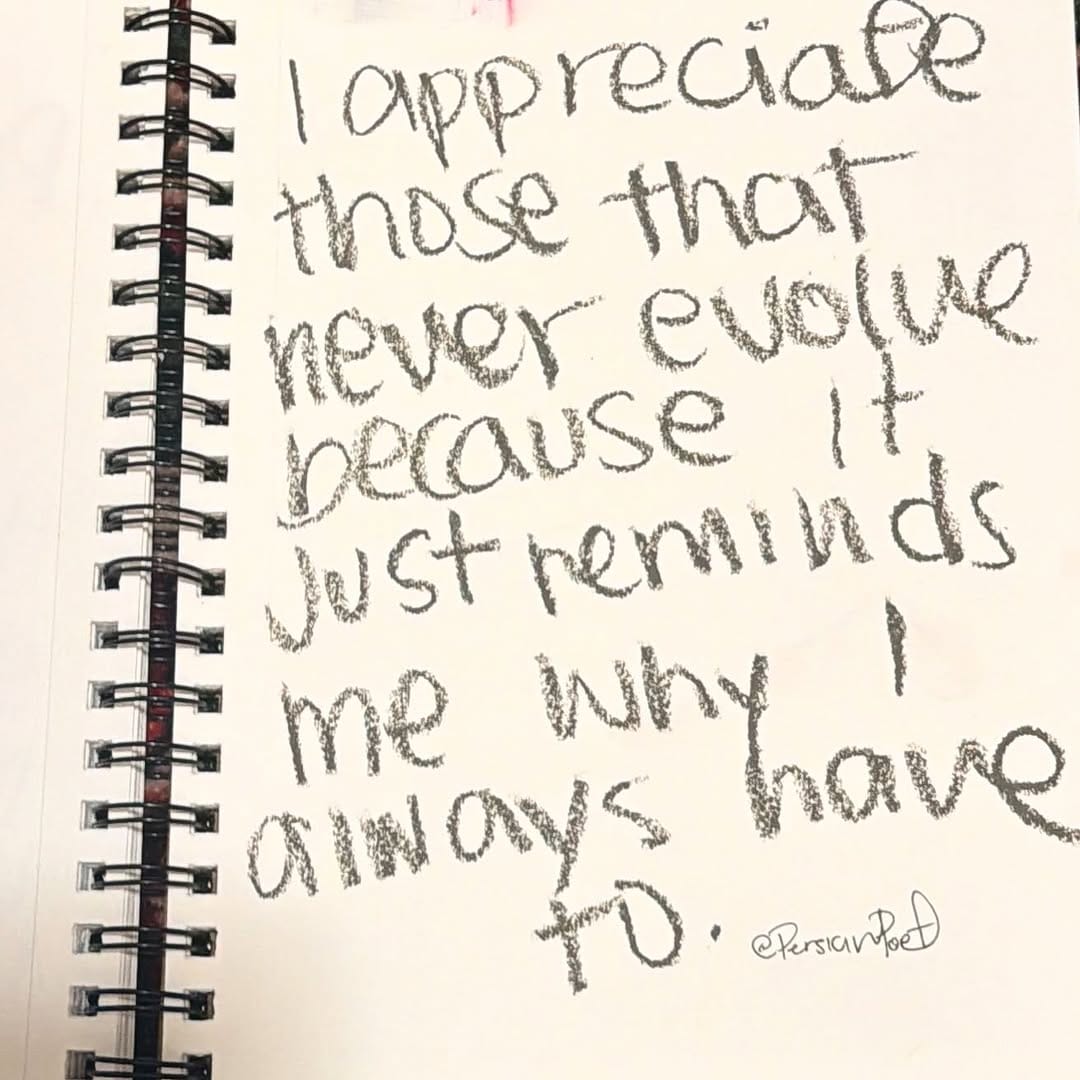 I appreciate
those that
never evolve
because it
Just reminds
me why I
always have
to.
@PersianPoet